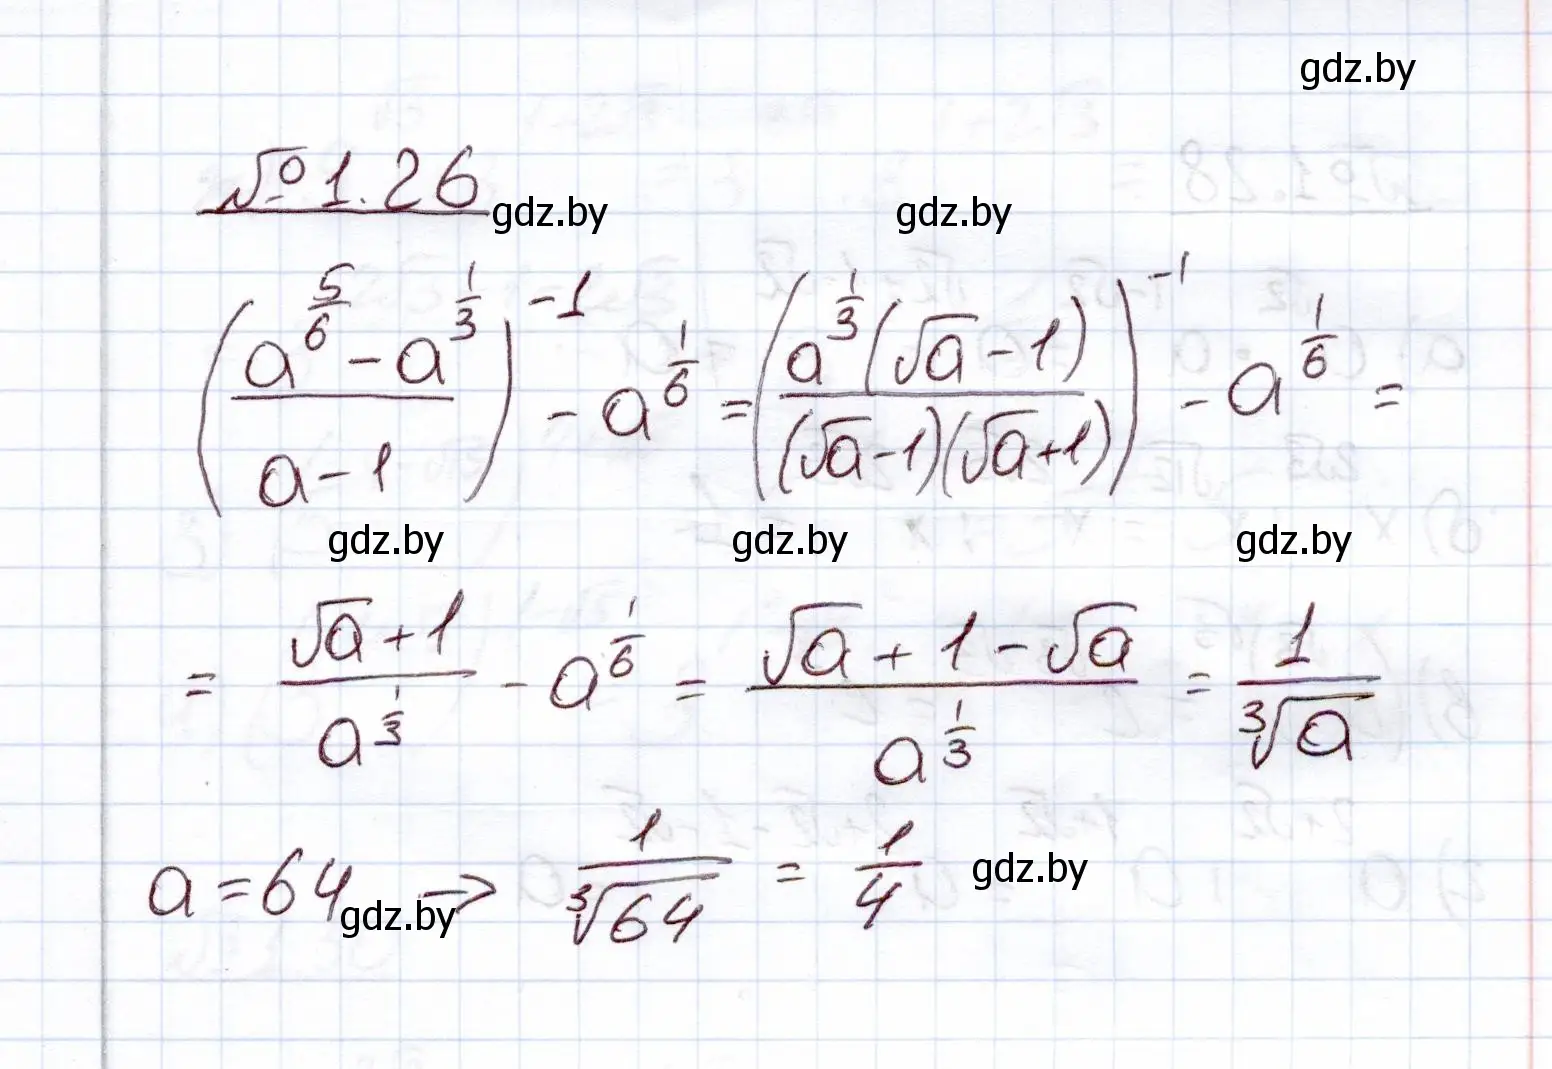 gdz.by
№ 1.26
gdz.by gdz.by
(a^(5/6) - a^(1/3) / a - 1)^(-1) - a^(1/6) = (a^(1/3) (√a - 1) / (√a - 1)(√a + 1))^(-1) - a^(1/6) =
gdz.by gdz.by gdz.by
= √a + 1 / a^(1/3) - a^(1/6) = √a + 1 - √a / a^(1/3) = 1 / ∛a
a = 64 → 1 / ∛64 = 1/4 gdz.by
gdz.by